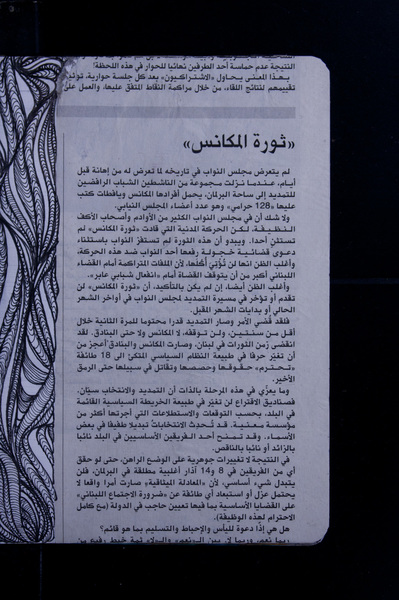 النتيجة عدم حماسة أحد الطرفين نهائيا للحوار في هذه اللحظة!
بهذا المعنى يحاول «الاشتراكيون» بعد كل جلسة حوارية، توثيق
تقييمهم لنتائج اللقاء، من خلال مراكمة النقاط المتفق عليها، والعمل على
«ثورة المكانس»
لم يتعرض مجلس النواب في تاريخه لما تعرض له من إهانة قبل
أيام، عندما نزلت مجموعة من الناشطين الشباب الرافضين
للتمديد إلى ساحة البرلمان، يحمل أفرادها المكانس ويافطات كتب
عليها «128 حرامي» وهو عدد أعضاء المجلس النيابي.
ولا شك أن في مجلس النواب الكثير من الأوادم وأصحاب الأكف
النظيفة، لكن الحركة المدنية التي قادت «ثورة المكانس» لم
تستثن أحدا. ويبدو أن هذه الثورة لم تستفز النواب باستثناء
دعوى قضائية خجولة رفعها أحد النواب ضد هذه الحركة،
وأغلب الظن انها لن تُؤتي أُكُلها، لأن الملفات المتراكمة أمام القضاء
اللبناني أكبر من أن يتوقف القضاة أمام «انفعال شبابي عابر».
وأغلب الظن أيضا، إن لم يكن بالتأكيد، أن «ثورة المكانس» لن
تقدم أو تؤخر في مسيرة التمديد لمجلس النواب في أواخر الشهر
الحالي أو بدايات الشهر المقبل.
فلقد قُضي الأمر وصار التمديد قدرا محتوما للمرة الثانية خلال
أقل من سنتين، ولن توقفه، لا المكانس ولا حتى البنادق. لقد
انقضى زمن الثورات في لبنان، وصارت المكانس والبنادق أعجز من
أن تغيّر حرفا في طبيعة النظام السياسي المتكئ الى 18 طائفة
«تحترم» حقوقها وحصصها وتقاتل في سبيلها حتى الرمق
الأخير.
وما يعزّي في هذه المرحلة بالذات أن التمديد والانتخاب سيّان،
فصناديق الاقتراع لن تغيّر في طبيعة الخريطة السياسية القائمة
في البلد، بحسب التوقعات والاستطلاعات التي أجرتها أكثر من
مؤسسة معنية. قد تُحدث الانتخابات تبديلا طفيفا في بعض
الأسماء، وقد تمنح أحد الفريقين الأساسيين في البلد نائبا
بالزائد أو نائبا بالناقص.
في النتيجة لا تغييرات جوهرية على الوضع الراهن، حتى لو حقق
أي من الفريقين في 8 و14 آذار أغلبية مطلقة في البرلمان، فلن
يتبدل شيء أساسي، لأن «المعادلة الميثاقية» صارت أمرا واقعا لا
يحتمل عزل أو استبعاد أي طائفة عن «ضرورة الاجتماع اللبناني»
على القضايا الأساسية بما فيها تعيين حاجب في الدولة (مع كامل
الاحترام لهذه الوظيفة).
هل هي إذا دعوة لليأس والإحباط والتسليم بما هو قائم؟